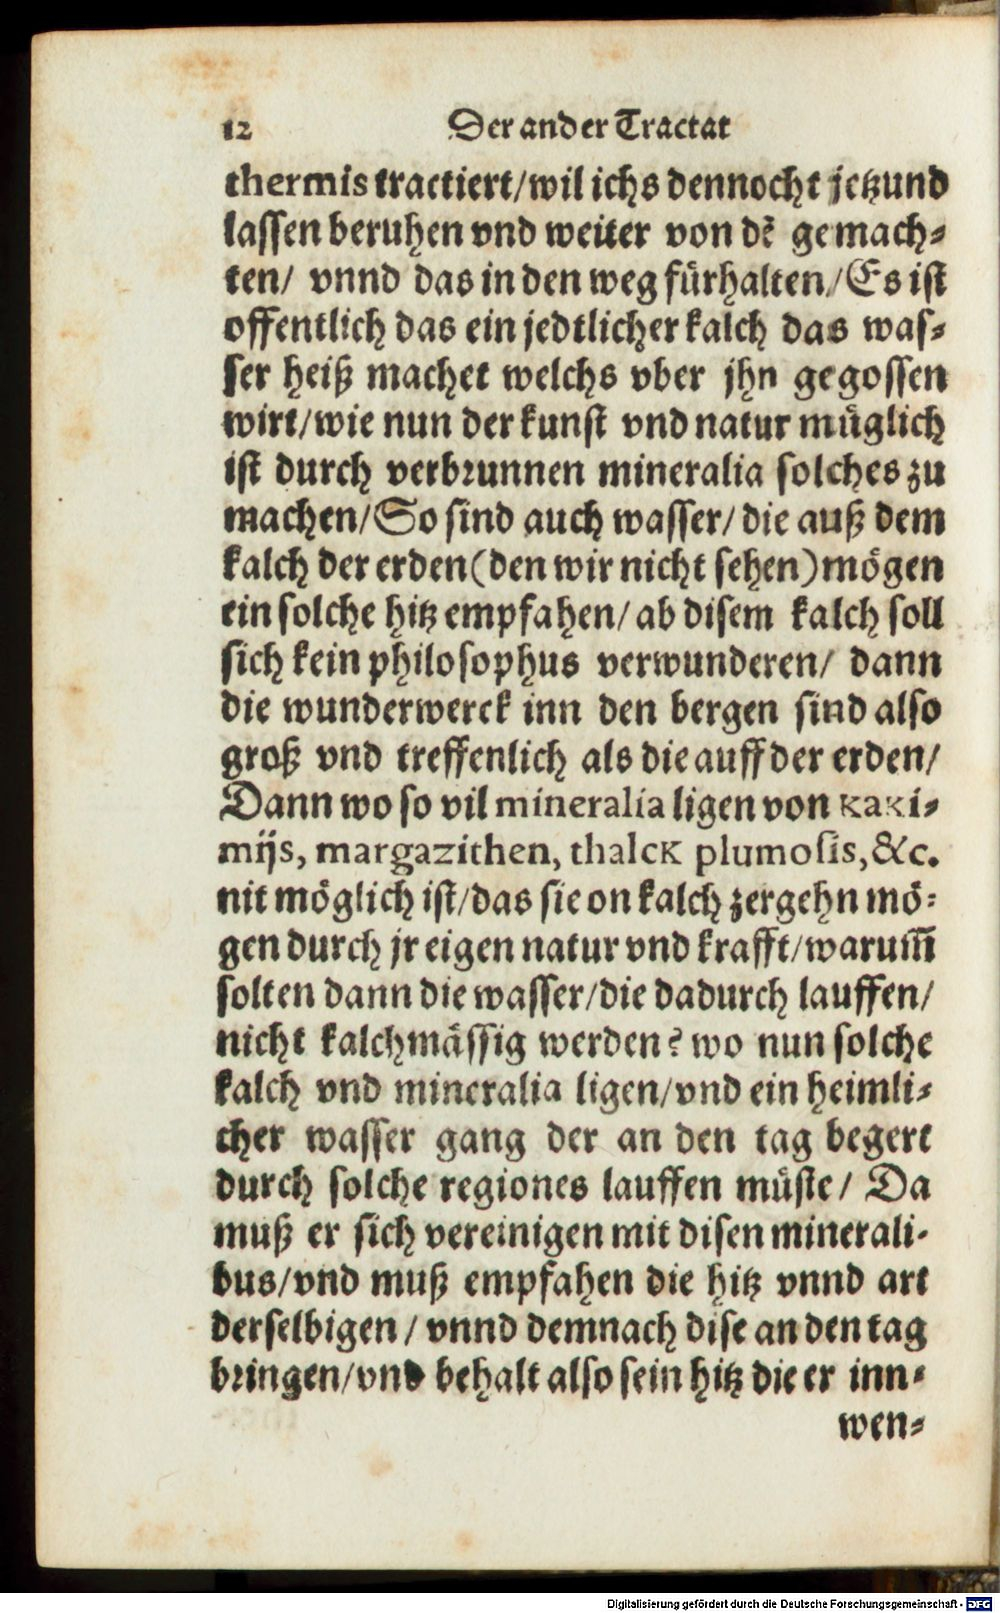 12 Der ander Tractat
thermis tractiert/wil ichs dennocht jetzund
lassen beruhen vnd weiter von dẽ gemach⸗
ten/ vnnd das in den weg fürhalten/Es ist
offentlich das ein jedtlicher kalch das was⸗
ser heiß machet welchs vber jhn gegossen
wirt/wie nun der kunst vnd natur müglich
ist durch verbrunnen mineralia solches zu
machen/So sind auch wasser/die auß dem
kalch der erden(den wir nicht sehen)mögen
ein solche hitz empfahen/ab disem kalch soll
sich kein philosophus verwunderen/ dann
die wunderwerck inn den bergen sind also
groß vnd treffenlich als die auff der erden/
Dann wo so vil mineralia ligen von kaki⸗
mijs, margazithen, thalck plumosis, &c.
nit möglich ist/das sie on kalch zergehn mö⸗
gen durch jr eigen natur vnd krafft/warum̃
solten dann die wasser/die dadurch lauffen/
nicht kalchmässig werden? wo nun solche
kalch vnd mineralia ligen/vnd ein heimli⸗
cher wasser gang der an den tag begert
durch solche regiones lauffen müste/ Da
muß er sich vereinigen mit disen minerali⸗
bus/vnd muß empfahen die hitz vnnd art
derselbigen/ vnnd demnach dise an den tag
bringen/vnd behalt also sein hitz die er inn⸗
wen⸗
Digitalisierung gefördert durch die Deutsche Forschungsgemeinschaft - DFG